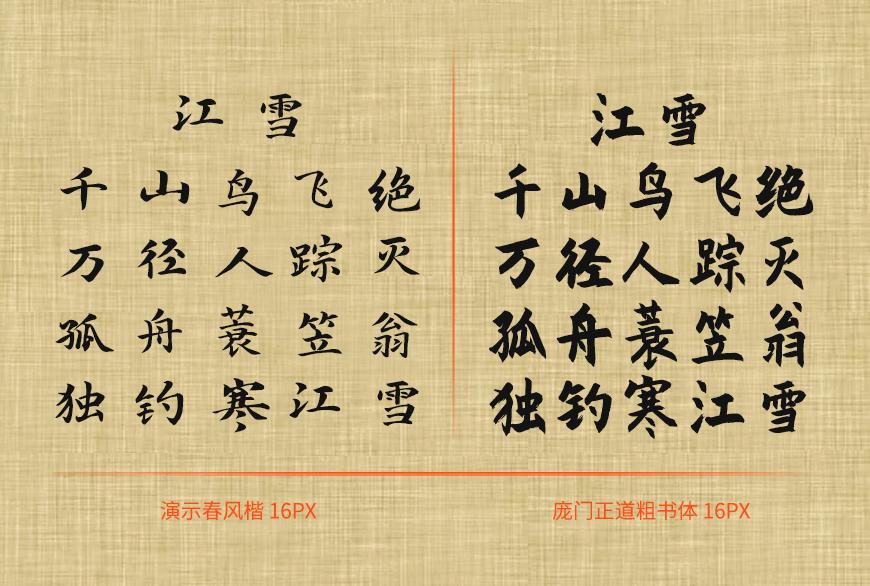 江雪
千山鸟飞绝
万径人踪灭
孤舟蓑笠翁
独钓寒江雪
演示春风楷 16PX
江雪
千山鸟飞绝
万径人踪灭
孤舟蓑笠翁
独钓寒江雪
庞门正道粗书体 16PX